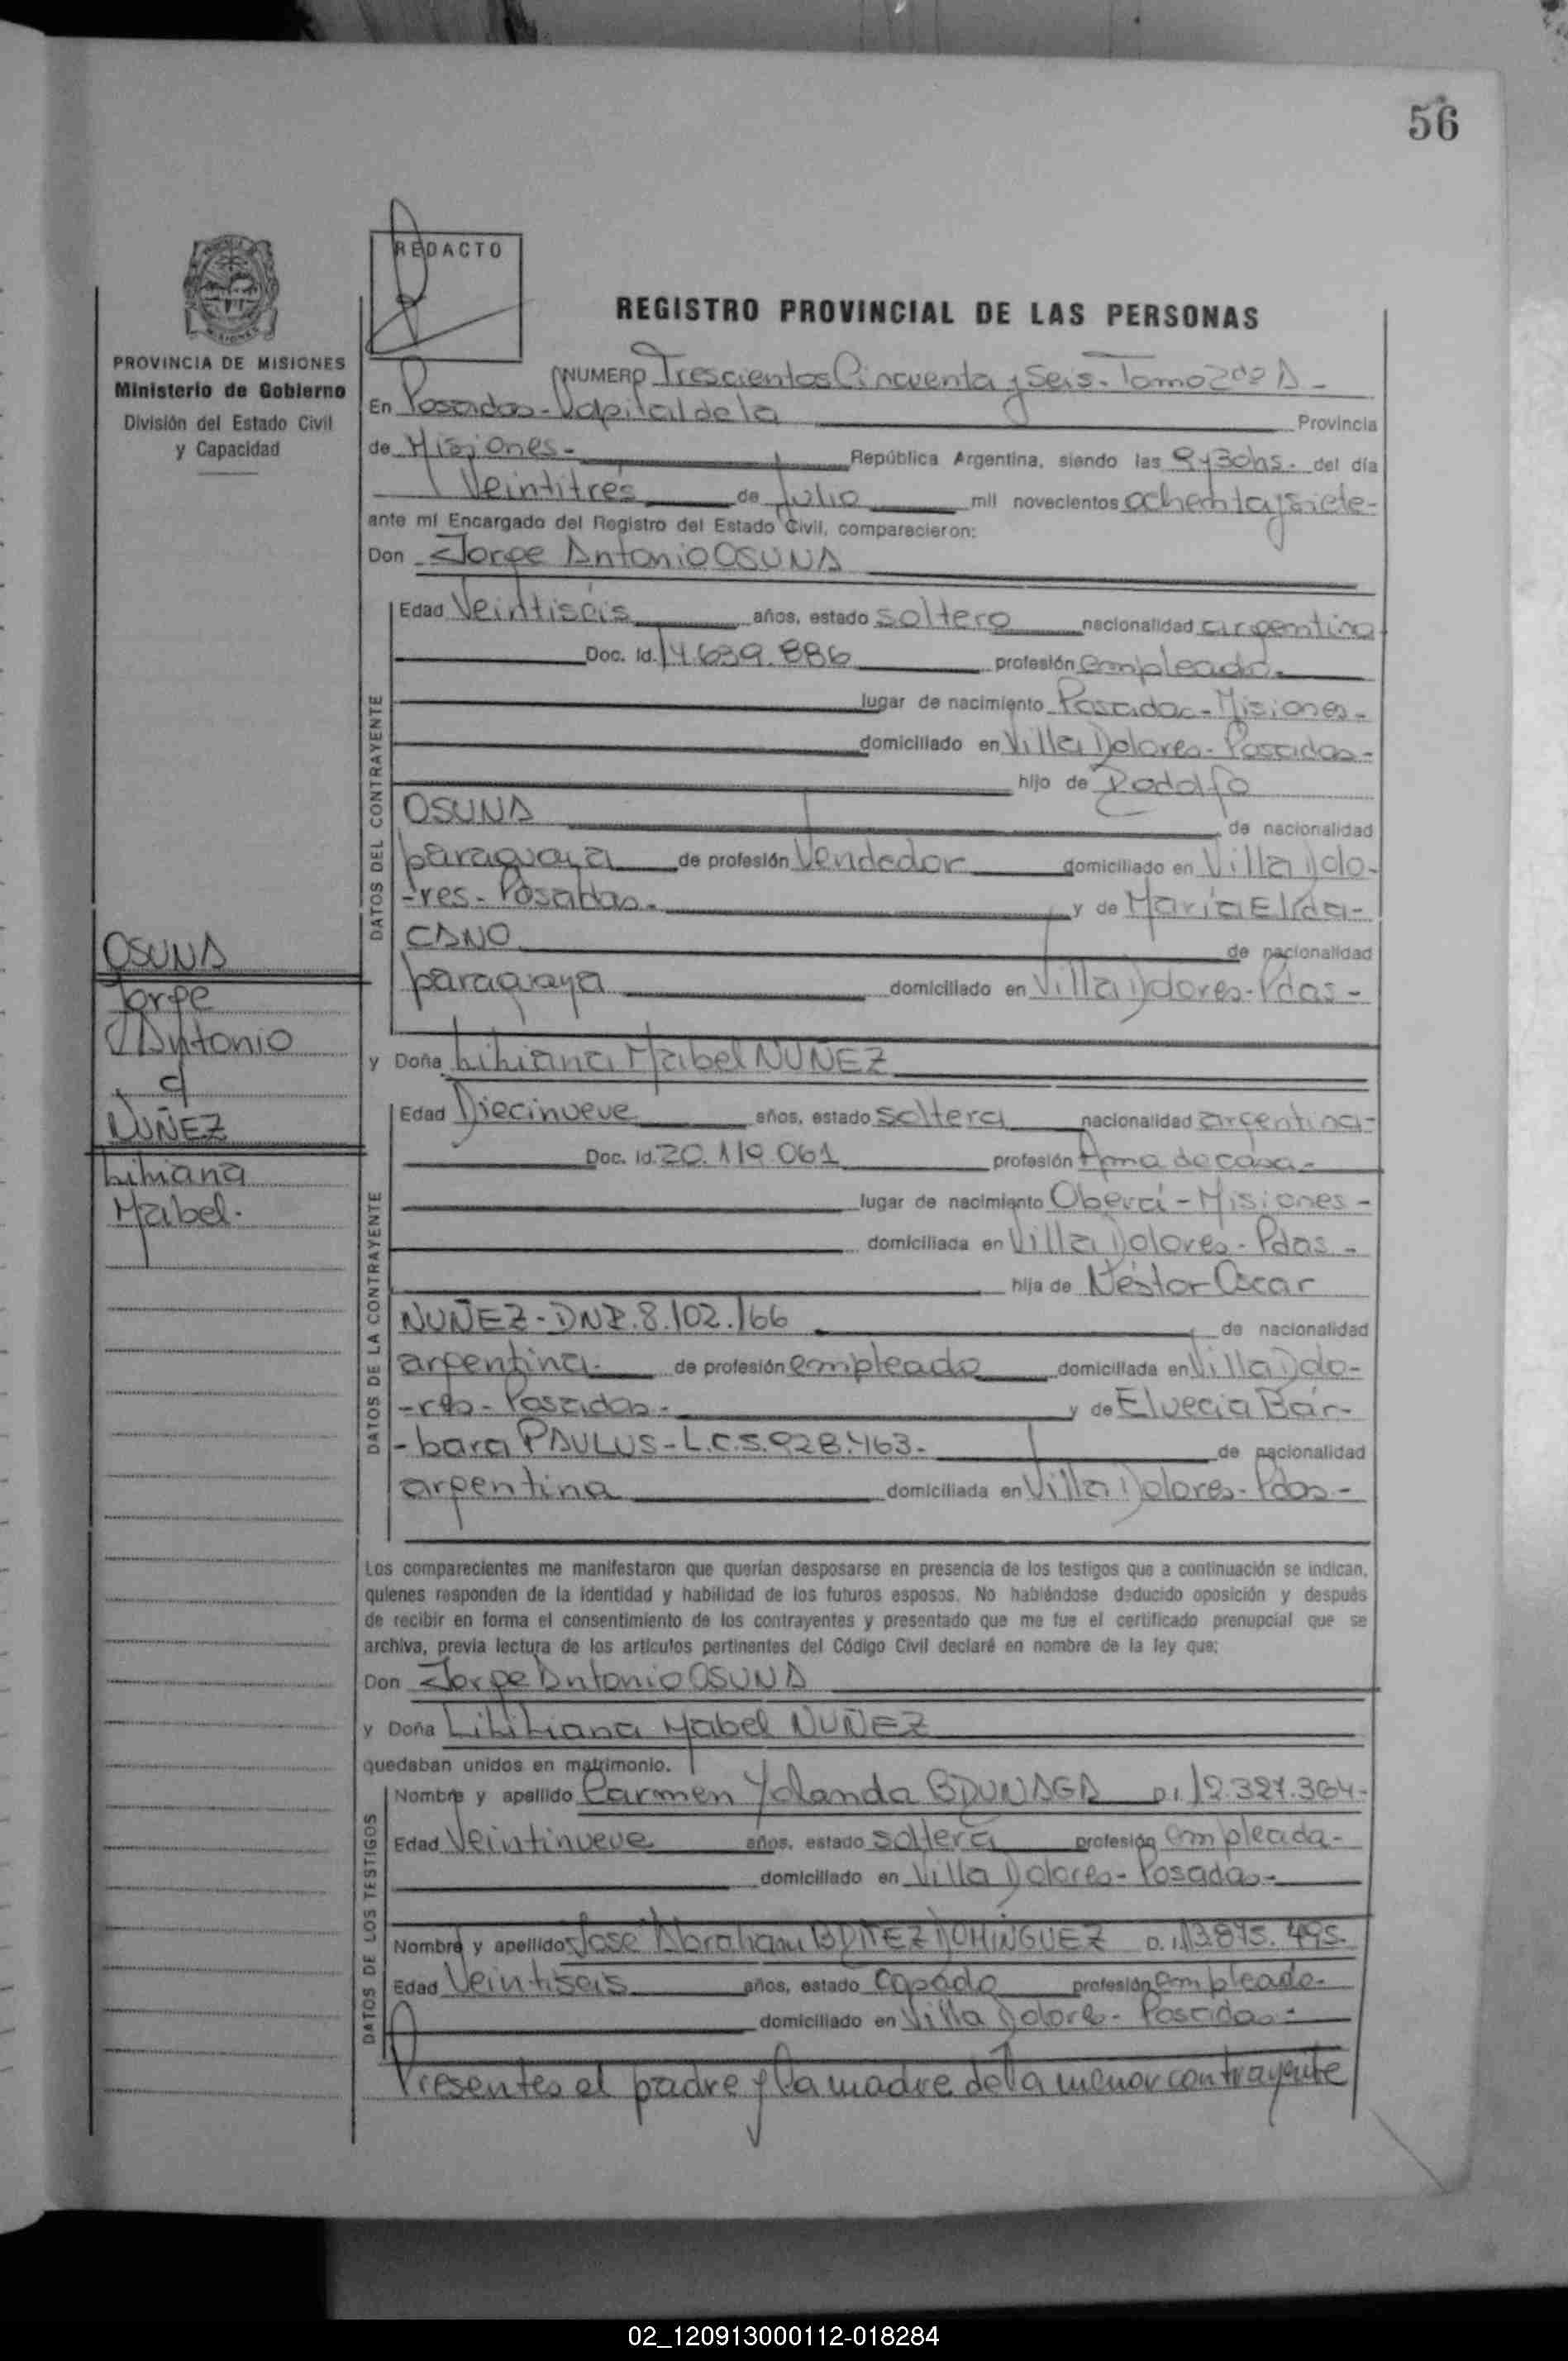 56
REDACTO
REGISTRO PROVINCIAL DE LAS PERSONAS
PROVINCIA DE MISIONES
Ministerio de Gobierno
División del Estado Civil
y Capacidad
NUMERO Trescientos Cincuenta y Seis - Tomo 2do A -
En Posadas - Capital de la Provincia
de Misiones - República Argentina, siendo las 9 y 30 hs. del día
Veintitres de Julio mil novecientos ochenta y siete -
ante mí Encargado del Registro del Estado Civil, comparecieron:
Don Jorge Antonio OSUNA
DATOS DEL CONTRAYENTE
Edad Veintiséis años, estado soltero nacionalidad argentina
Doc. Id. 14.639.886 profesión empleado -
lugar de nacimiento Posadas - Misiones -
domiciliado en Villa Dolores - Posadas -
hijo de Rodolfo
OSUNA de nacionalidad
paraguaya de profesión Vendedor domiciliado en Villa Dolo-
-res - Posadas - y de María Elida -
CANO de nacionalidad
paraguaya domiciliado en Villa Dolores - Pdas -
OSUNA
Jorge
Antonio
c/
NUÑEZ
Liliana
Mabel -
y Doña Liliana Mabel NUÑEZ
DATOS DE LA CONTRAYENTE
Edad Diecinueve años, estado soltera nacionalidad argentina -
Doc. Id. 20.119.061 profesión Ama de casa -
lugar de nacimiento Oberá - Misiones -
domiciliada en Villa Dolores - Pdas -
hija de Néstor Oscar
NUÑEZ - DNI. 8.102.166 de nacionalidad
argentina - de profesión empleado domiciliada en Villa Dolo-
-res - Posadas - y de Elvecia Bár-
-bara PAULUS - L.C. 5.928.463 - de nacionalidad
argentina domiciliada en Villa Dolores - Pdas -
Los comparecientes me manifestaron que querían desposarse en presencia de los testigos que a continuación se indican,
quienes responden de la identidad y habilidad de los futuros esposos. No habiéndose deducido oposición y después
de recibir en forma el consentimiento de los contrayentes y presentado que me fue el certificado prenupcial que se
archiva, previa lectura de los artículos pertinentes del Código Civil declaré en nombre de la ley que:
Don Jorge Antonio OSUNA
y Doña Liliana Mabel NUÑEZ
quedaban unidos en matrimonio.
DATOS DE LOS TESTIGOS
Nombre y apellido Carmen Yolanda D.I. 12.327.364 -
Edad Veintinueve años, estado soltera profesión empleada -
domiciliado en Villa Dolores - Posadas -
Nombre y apellido José Abraham DOMINGUEZ D.I. 13.875.495 -
Edad Veintiseis años, estado casado profesión empleado -
domiciliado en Villa Dolores - Posadas -
Presentes el padre y la madre de la menor contrayente
02_120913000112-018284